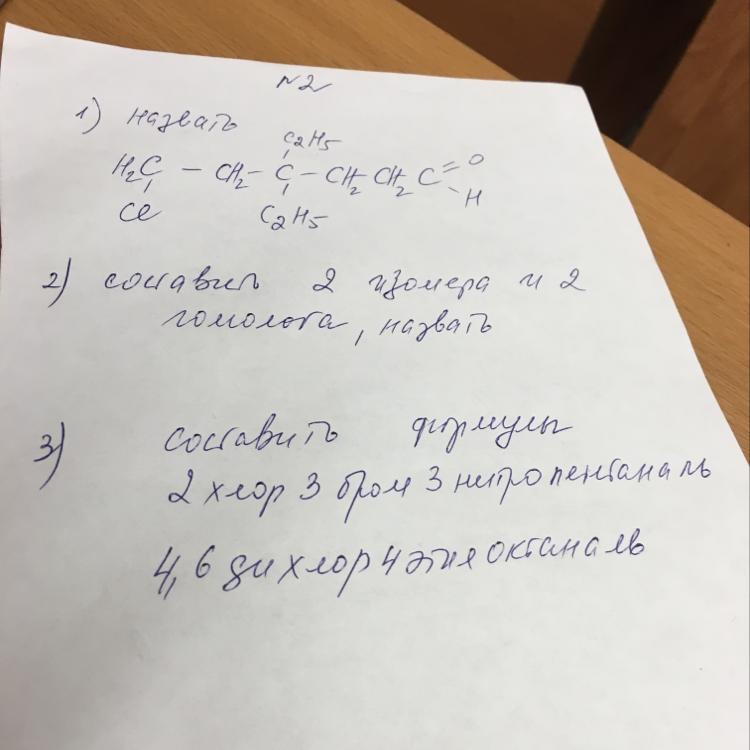 №2
1) назвать
C2H5
H2C — CH2 — C — CH2 CH2 C = O
H
Cl
C2H5
2) составить 2 изомера и 2
гомолога, назвать
3) составить формулы
2 хлор 3 бром 3 нитропентаналь
4,6 дихлор 4 этилоктаналь